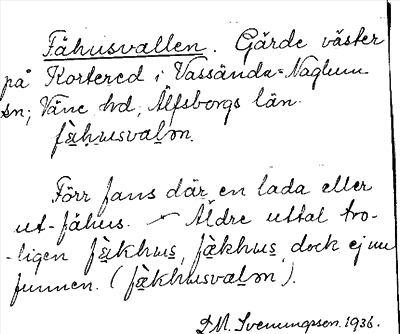 Fähusvallen. Gärde väster
på Kortered i Vassända-Naglum
sn; Väne hd, Älfsborgs län.
fæ̀husvaləm.
Förr fans där en lada eller
ut-fähus. — Äldre uttal tro-
-ligen fæ̀khus, fækhus, dock ej nu
funnen. (fæ̀khusvaləm).
D.M. Svenungsson. 1936.